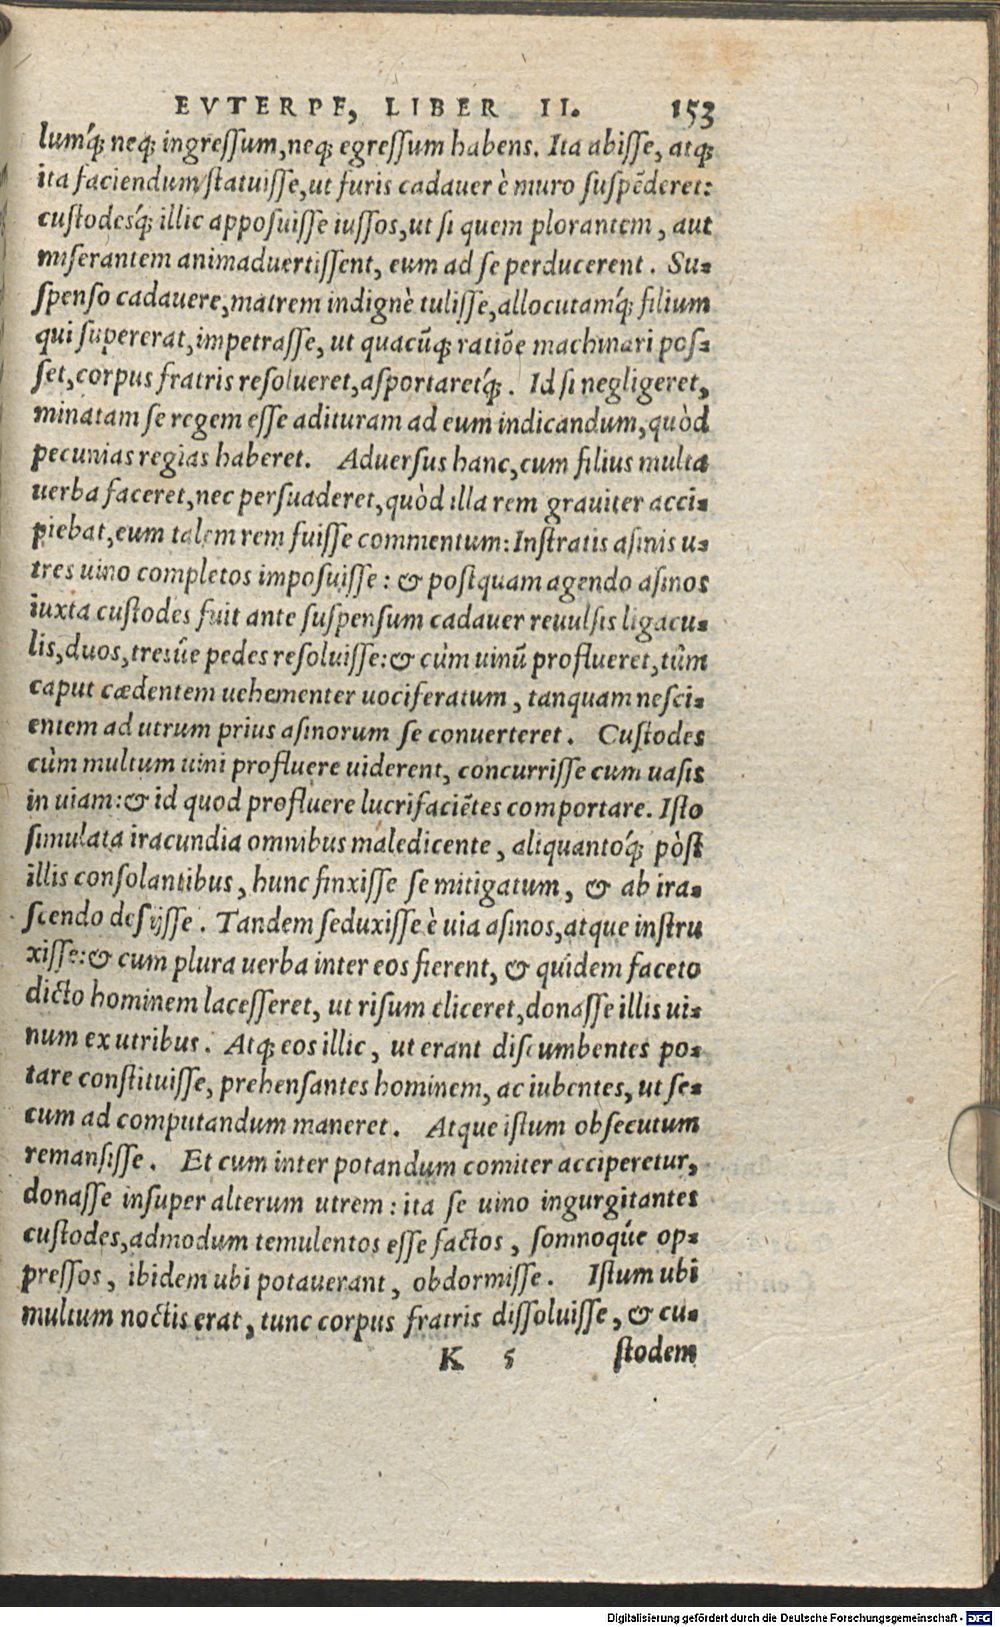 EVTERPE, LIBER II. 153
lumq́; neq; ingreſſum, neq; egreſſum habens. Ita abiſſe, atq;
ita faciendum ſtatuiſſe, ut furis cadauer è muro ſuſpēderet:
cuſtodesq́; illic appoſuiſſe iuſſos, ut ſi quem plorantem, aut
miſerantem animaduertiſſent, eum ad ſe perducerent. Su-
ſpenſo cadauere, matrem indignè tuliſſe, allocutamq́; filium
qui ſupererat, impetraſſe, ut quacūq; ratiōe machinari poſ-
ſet, corpus fratris reſolueret, aſportaretq́;. Id ſi negligeret,
minatam ſe regem eſſe adituram ad eum indicandum, quòd
pecunias regias haberet. Aduerſus hanc, cum filius multa
uerba faceret, nec perſuaderet, quòd illa rem grauiter acci-
piebat, eum talem rem fuiſſe commentum: Inſtratis aſinis u-
tres uino completos impoſuiſſe: & poſtquam agendo aſinos
iuxta cuſtodes fuit ante ſuſpenſum cadauer reuulſis ligacu-
lis, duos, tresúe pedes reſoluiſſe: & cùm uinū proflueret, tùm
caput cædentem uehementer uociferatum, tanquam neſci-
entem ad utrum prius aſinorum ſe conuerteret. Cuſtodes
cùm multum uini profluere uiderent, concurriſſe cum uaſis
in uiam: & id quod profluere lucrifaciētes comportare. Iſto
ſimulata iracundia omnibus maledicente, aliquantoq́; pòſt
illis conſolantibus, hunc finxiſſe ſe mitigatum, & ab ira-
ſcendo deſijſſe. Tandem ſeduxiſſe è uia aſinos, atque inſtru
xiſſe: & cum plura uerba inter eos fierent, & quidem faceto
dicto hominem laceſſeret, ut riſum eliceret, donaſſe illis ui-
num ex utribus. Atq; eos illic, ut erant diſcumbentes po-
tare conſtituiſſe, prehenſantes hominem, ac iubentes, ut ſe-
cum ad computandum maneret. Atque iſtum obſecutum
remanſiſſe. Et cum inter potandum comiter acciperetur,
donaſſe inſuper alterum utrem: ita ſe uino ingurgitantes
cuſtodes, admodum temulentos eſſe factos, ſomnoq́ue op-
preſſos, ibidem ubi potauerant, obdormiſſe. Iſtum ubi
multum noctis erat, tunc corpus fratris diſſoluiſſe, & cu-
K 5 ſtodem
Digitalisierung gefördert durch die Deutsche Forschungsgemeinschaft - DFG